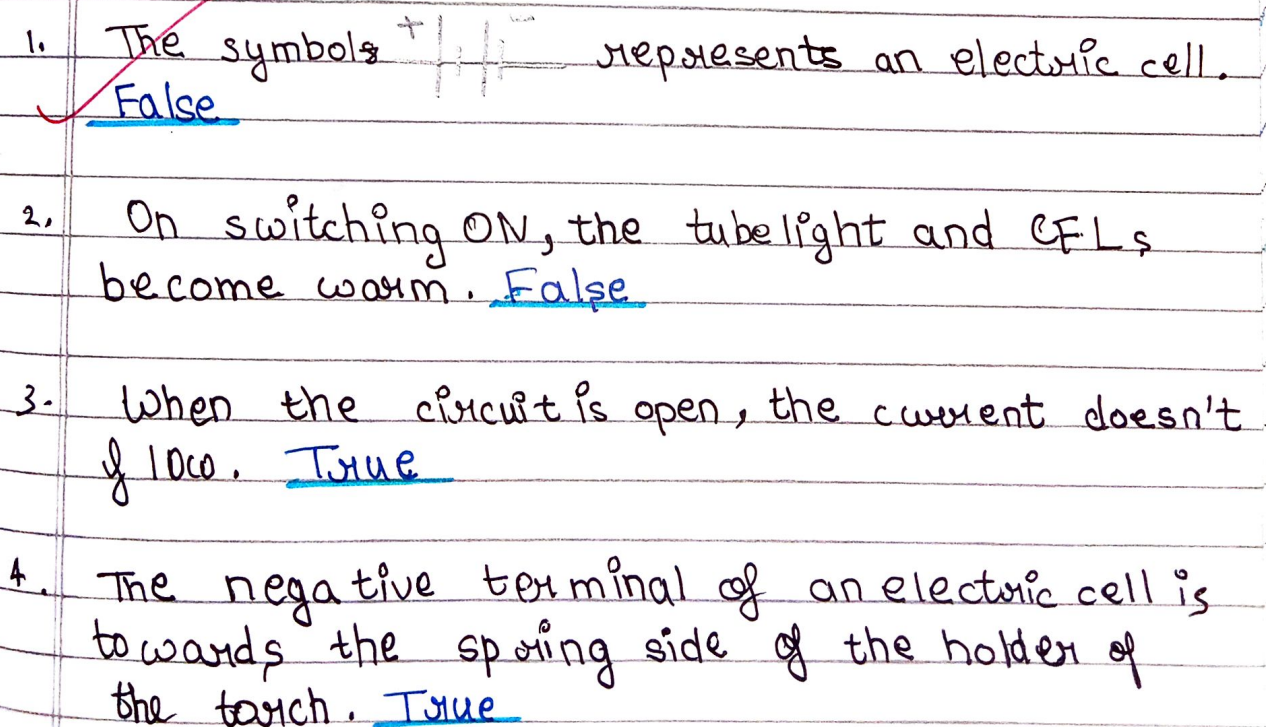 1. The symbols + - represents an electric cell.
False
2. On switching ON, the tubelight and CFLs
become warm. False
3. When the circuit is open, the current doesn't
flow. True
4. The negative terminal of an electric cell is
towards the spring side of the holder of
the torch. True